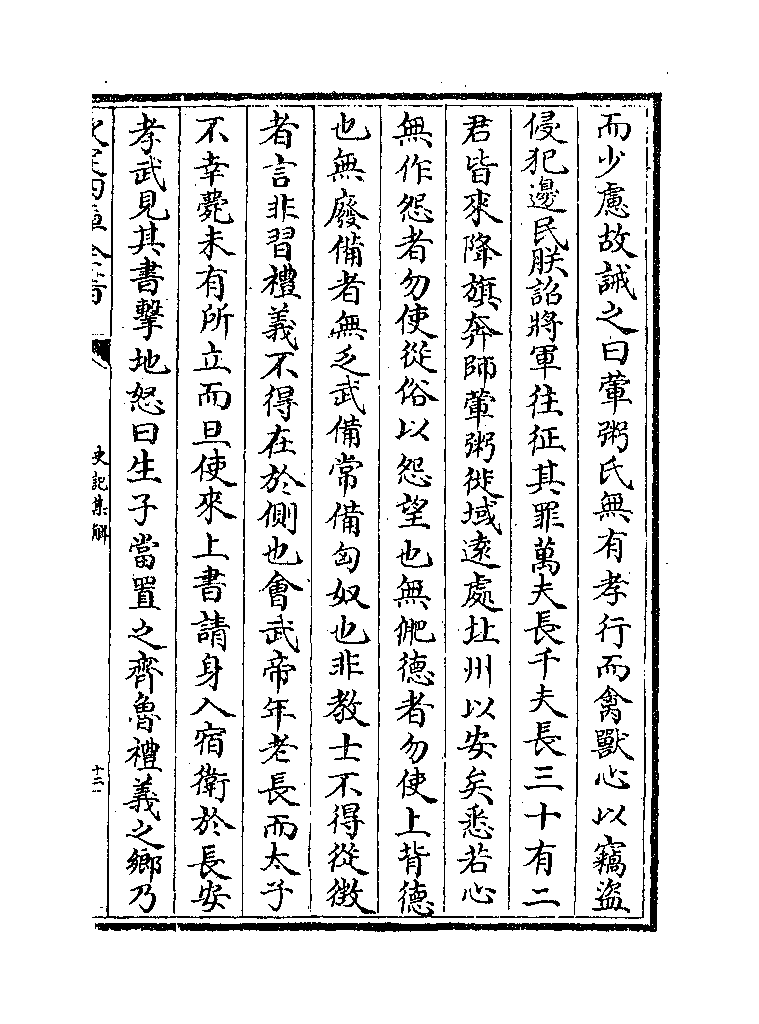 而少慮故誡之曰葷粥氏無有孝行而禽獸心以竊盜
侵犯邊民朕詔將軍往征其罪萬夫長千夫長三十有二
君皆來降旗奔師葷粥徙域遠處北州以安矣悉若心
無作怨者勿使從俗以怨望也無俷德者勿使上背德
也無廢備者無乏武備常備匈奴也非教士不得從徴
者言非習禮義不得在於側也會武帝年老長而太子
不幸薨未有所立而旦使來上書請身入宿衛於長安
孝武見其書擊地怒曰生子當置之齊魯禮義之鄉乃
欽定四庫全書
史記集解
十二